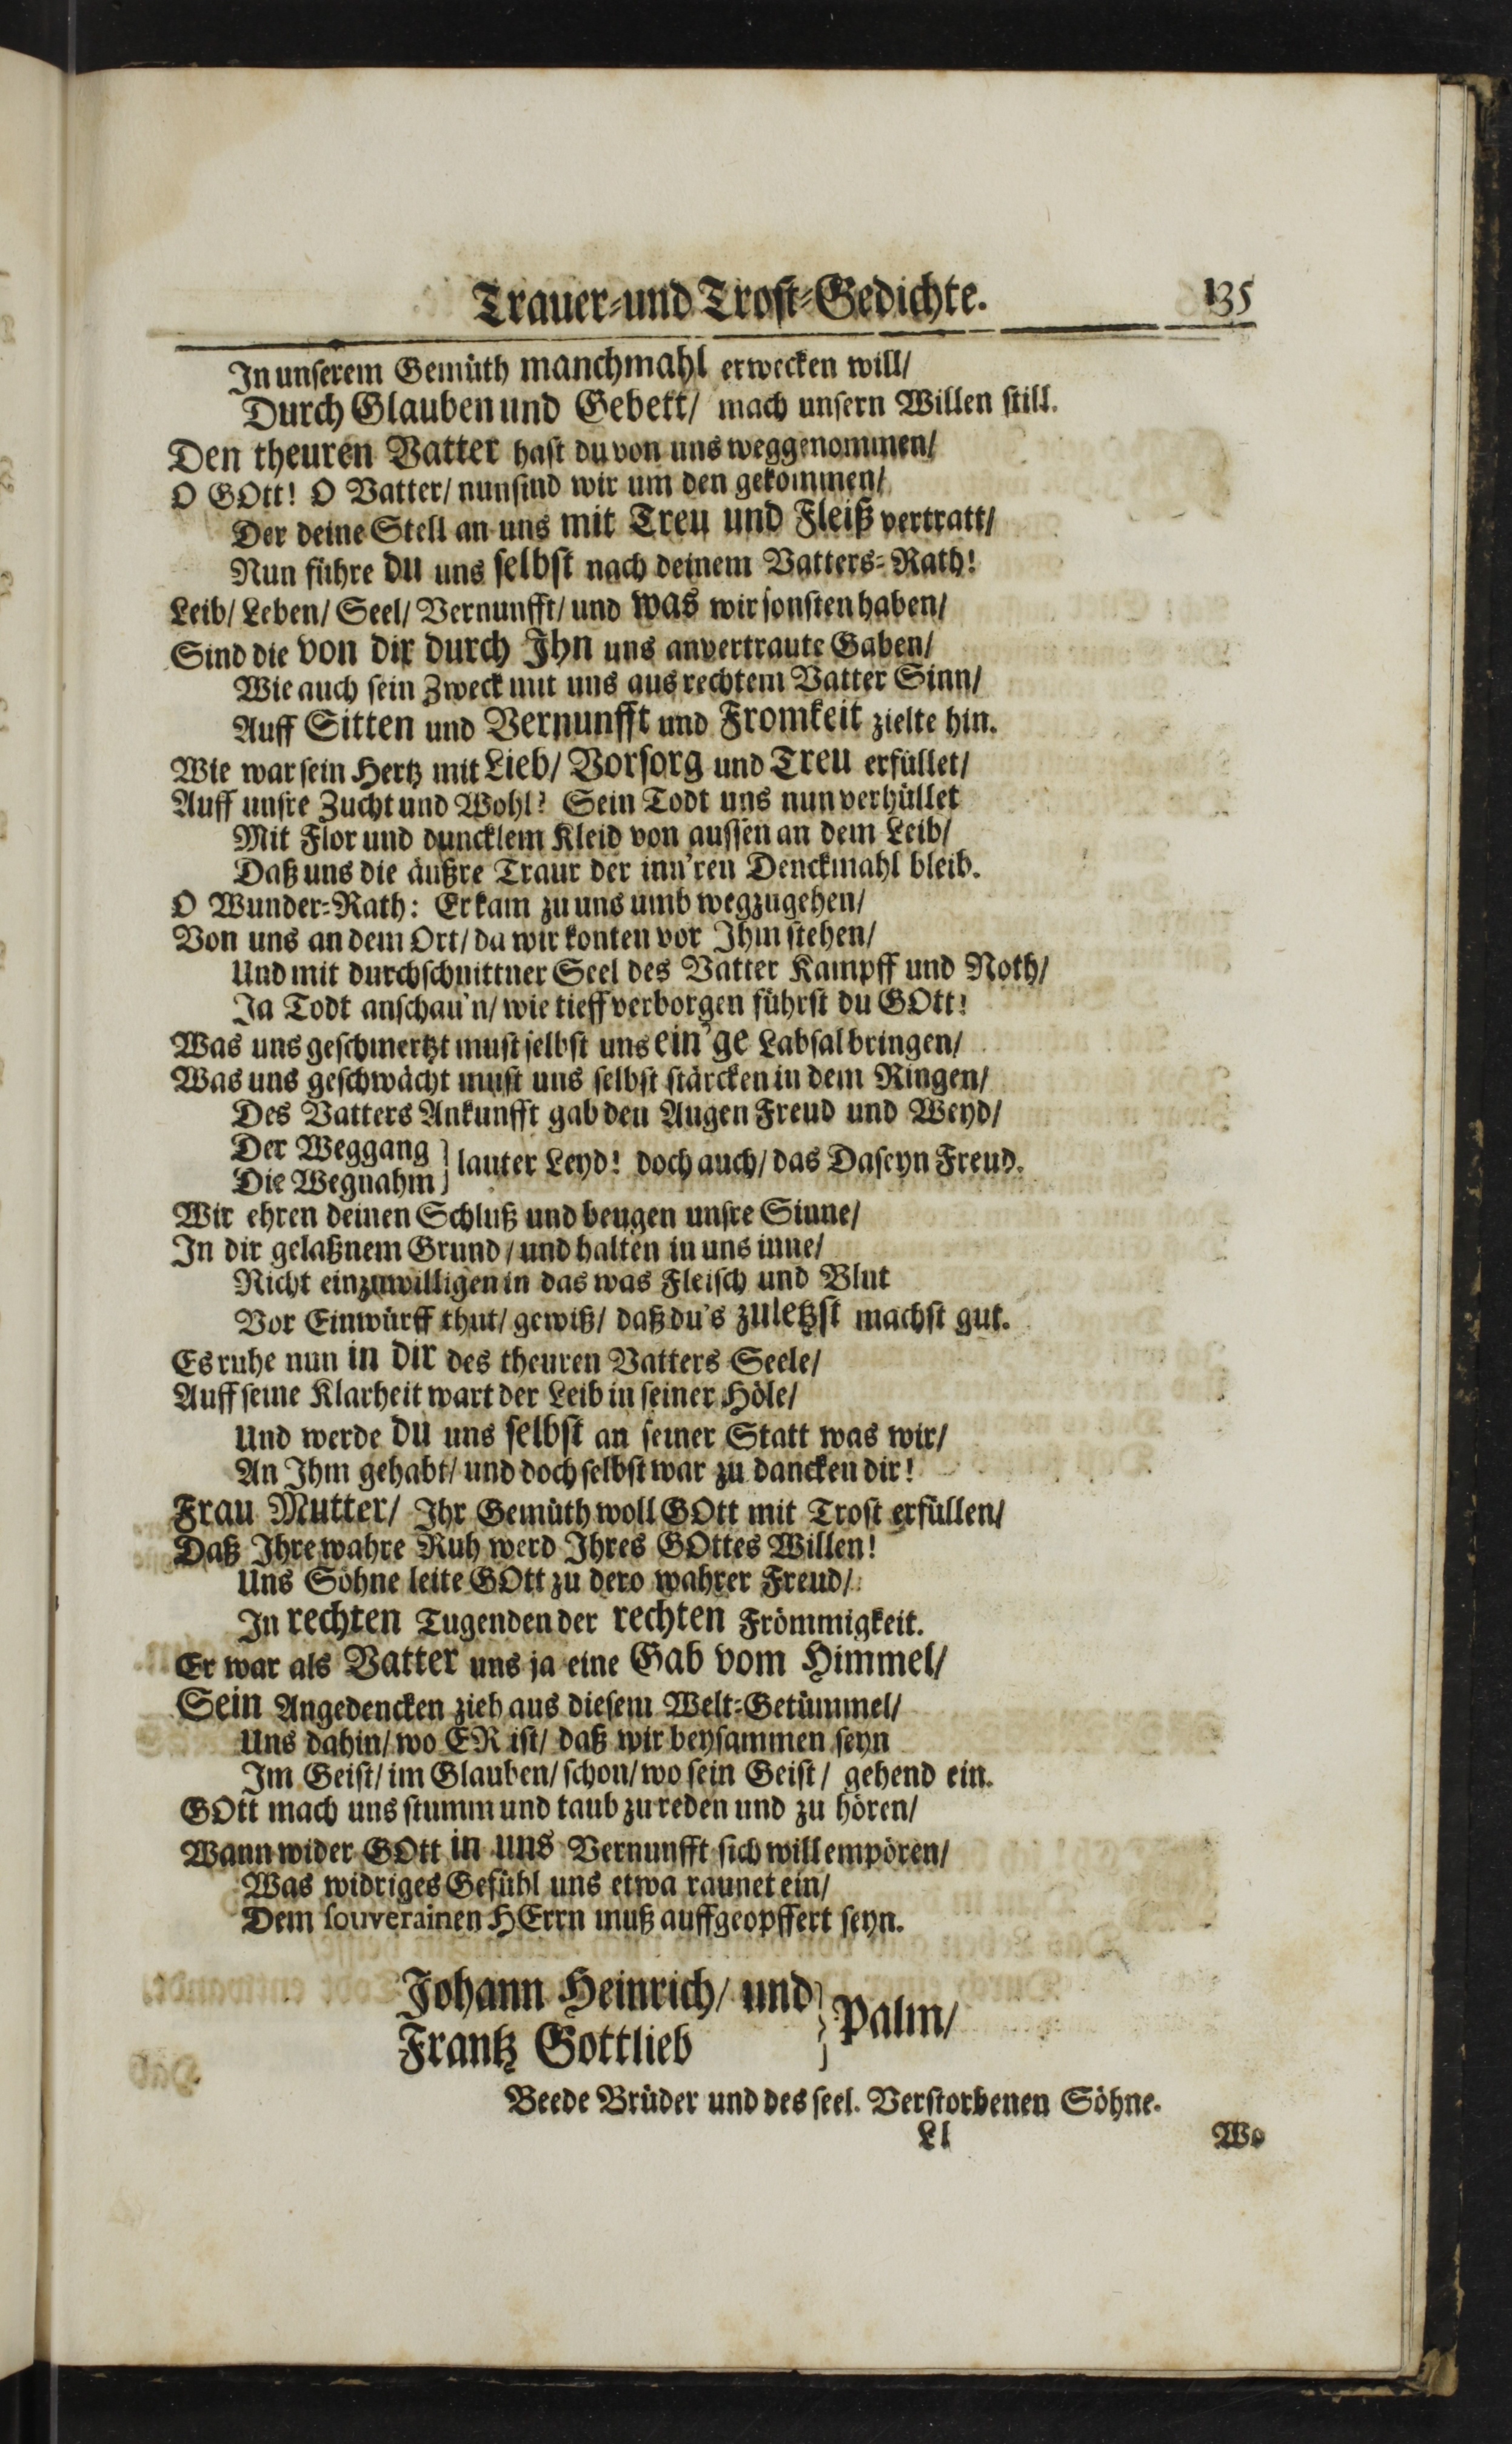 Trauer-und Trost-Gedichte. 135
In unserem Gemüth manchmahl erwecken will/
Durch Glauben und Gebett/ mach unsern Willen still.
Den theuren Vatter hast du von uns weggenommen/
O GOtt! O Vatter/ nun sind wir um den gekommen/
Der deine Stell an uns mit Treu und Fleiß vertratt/
Nun führe du uns selbst nach deinem Vatters-Rath!
Leib/ Leben/ Seel/ Vernunfft/ und was wir sonsten haben/
Sind die von dir durch Ihn uns anvertraute Gaben/
Wie auch sein Zweck mit uns aus rechtem Vatter Sinn/
Auff Sitten und Vernunfft und Fromkeit zielte hin.
Wie war sein Hertz mit Lieb/ Vorsorg und Treu erfüllet/
Auff unsre Zucht und Wohl? Sein Todt uns nun verhüllet
Mit Flor und duncklem Kleid von aussen an dem Leib/
Daß uns die äußre Traur der inn'ren Denckmahl bleib.
O Wunder-Rath: Er kam zu uns umb wegzugehen/
Von uns an dem Ort/ da wir konten vor Ihm stehen/
Und mit durchschnittner Seel des Vatter Kampff und Noth/
Ja Todt anschau'n/ wie tieff verborgen führst du GOtt!
Was uns geschmertzt must selbst uns ein'ge Labsal bringen/
Was uns geschwächt must uns selbst stärcken in dem Ringen/
Des Vatters Ankunfft gab den Augen Freud und Weyd/
Der Weggang } lauter Leyd! doch auch/ das Daseyn Freud.
Die Wegnahm
Wir ehren deinen Schluß und beugen unsre Sinne/
In dir gelaßnem Grund/ und halten in uns inne/
Nicht einzuwilligen in das was Fleisch und Blut
Vor Einwürff thut/ gewiß/ daß du's zuletzst machst gut.
Es ruhe nun in dir des theuren Vatters Seele/
Auff seine Klarheit wart der Leib in seiner Höle/
Und werde du uns selbst an seiner Statt was wir/
An Ihm gehabt/ und doch selbst war zu dancken dir!
Frau Mutter/ Ihr Gemüth woll GOtt mit Trost erfüllen/
Daß Ihre wahre Ruh werd Ihres GOttes Willen!
Uns Söhne leite GOtt zu dero wahrer Freud/
In rechten Tugenden der rechten Frömmigkeit.
Er war als Vatter uns ja eine Gab vom Himmel/
Sein Angedencken zieh aus diesem Welt-Getümmel/
Uns dahin/ wo ER ist/ daß wir beysammen seyn
Im Geist/ im Glauben/ schon/ wo sein Geist/ gehend ein.
GOtt mach uns stumm und taub zu reden und zu hören/
Wann wider GOtt in uns Vernunfft sich will empören/
Was widriges Gefühl uns etwa raunet ein/
Dem souverainen HErrn muß auffgeopffert seyn.
Johann Heinrich/ und } Palm/
Frantz Gottlieb
Beede Brüder und des seel. Verstorbenen Söhne.
Ll Wo